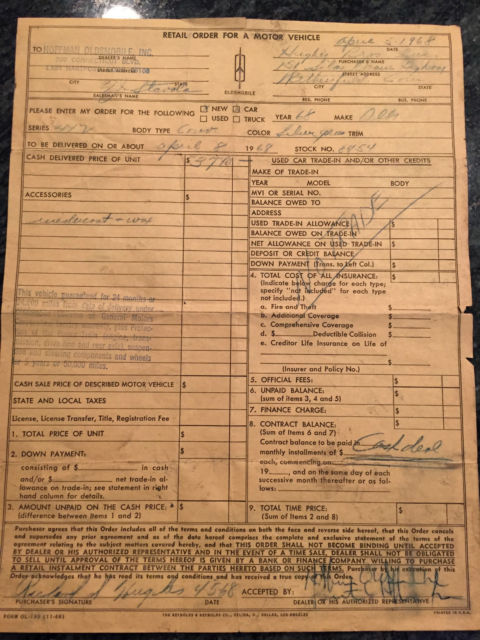 RETAIL ORDER FOR A MOTOR VEHICLE
April 5-1968
DATE
TO HOFFMAN OLDSMOBILE, INC.
DEALER'S NAME
700 CONNECTICUT BLVD.
EAST HARTFORD 06108
PURCHASER'S NAME
STREET ADDRESS
CITY STATE
CITY STATE
SALESMAN'S NAME
OLDSMOBILE
RES. PHONE BUS. PHONE
PLEASE ENTER MY ORDER FOR THE FOLLOWING NEW USED CAR TRUCK YEAR 68 MAKE Olds
SERIES 442 BODY TYPE Conv COLOR TRIM
TO BE DELIVERED ON OR ABOUT April 8 1968 STOCK NO. 8954
CASH DELIVERED PRICE OF UNIT $
ACCESSORIES $
undercoat + wax
This vehicle guaranteed for 24 months or
& 5 years or 50,000 miles.
CASH SALE PRICE OF DESCRIBED MOTOR VEHICLE $
STATE AND LOCAL TAXES
License, License Transfer, Title, Registration Fee
1. TOTAL PRICE OF UNIT $
2. DOWN PAYMENT:
consisting of $ in cash
and/or $ net trade-in al-
lowance on trade-in; see statement in right
hand column for details. $
3. AMOUNT UNPAID ON THE CASH PRICE: $
(difference between Items 1 and 2)
USED CAR TRADE-IN AND/OR OTHER CREDITS
MAKE OF TRADE-IN
YEAR MODEL BODY
MVI OR SERIAL NO.
BALANCE OWED TO
ADDRESS
USED TRADE-IN ALLOWANCE $
BALANCE OWED ON TRADE-IN $
NET ALLOWANCE ON USED TRADE-IN $
DEPOSIT OR CREDIT BALANCE $
DOWN PAYMENT (Trans. to Left Col.) $
4. TOTAL COST OF ALL INSURANCE:
(Indicate below charge for each type;
specify "not included" for each type
not included.)
a. Fire and Theft
b. Additional Coverage
c. Comprehensive Coverage
d. $ Deductible Collision
e. Creditor Life Insurance on Life of
(Insurer and Policy No.) $
5. OFFICIAL FEES: $
6. UNPAID BALANCE: $
(sum of items 3, 4 and 5)
7. FINANCE CHARGE: $
8. CONTRACT BALANCE: $
(Sum of Items 6 and 7)
Contract balance to be paid in
monthly installments of $
Cash deal
each, commencing on
19 , and on the same day of each
successive month thereafter or as fol-
lows:
9. TOTAL TIME PRICE: $
(Sum of Items 2 and 8)
Purchaser agrees that this Order includes all of the terms and conditions on both the face and reverse side hereof, that this Order cancels
and supersedes any prior agreement and as of the date hereof comprises the complete and exclusive statement of the terms of the
agreement relating to the subject matters covered hereby, and that THIS ORDER SHALL NOT BECOME BINDING UNTIL ACCEPTED
BY DEALER OR HIS AUTHORIZED REPRESENTATIVE AND IN THE EVENT OF A TIME SALE, DEALER SHALL NOT BE OBLIGATED
TO SELL UNTIL APPROVAL OF THE TERMS HEREOF IS GIVEN BY A BANK OR FINANCE COMPANY WILLING TO PURCHASE
A RETAIL INSTALMENT CONTRACT BETWEEN THE PARTIES HERETO BASED ON SUCH TERMS. Purchaser by his execution of this
Order acknowledges that he has read its terms and conditions and has received a true copy
PURCHASER'S SIGNATURE DATE
ACCEPTED BY:
DEALER OR HIS AUTHORIZED REPRESENTATIVE
PRINTED IN U.S.A.